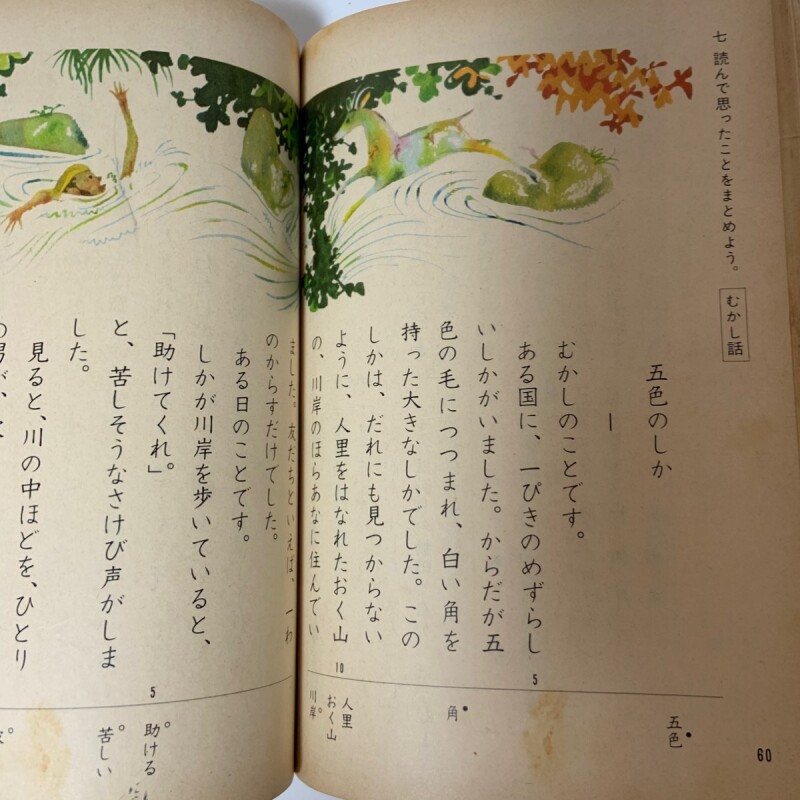 七 読んで思ったことをまとめよう。
むかし話
五色のしか
一
むかしのことです。
ある国に、一ぴきのめずらし
いしかがいました。からだが五
色の毛につつまれ、白い角を
持った大きなしかでした。この
しかは、だれにも見つからない
ように、人里をはなれたおく山
の、川岸のほらあなに住んでい
5
10
五色
角
人里
おく山
川岸
60
ました。友だちといえば、一わ
のからすだけでした。
ある日のことです。
しかが川岸を歩いていると、
「助けてくれ」
と、苦しそうなさけび声がしま
した。
見ると、川の中ほどを、ひとり
の男が、
5
助ける
苦しい